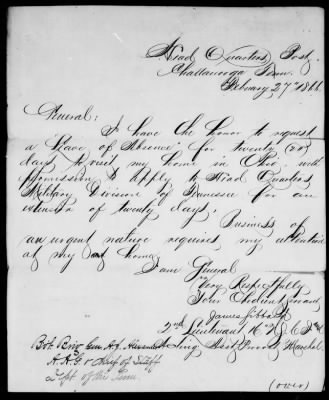 Head Quarters Post
Chattanooga Tenn.
February 27th 1866
General:
I have the honor to request
a Leave of Absence for twenty (20)
days to visit my home in Ohio with
permission to apply to Head Quarters
Military Division of Tennessee for an
extension of twenty days.
Business of
an urgent nature requires my attention
at my home
I am General
Very Respectfully
Your Obedient Servant
James
2nd Lieutenant 16th U.S.C.I.
Actg Asst Provost Marshal
Bvt. Brig Gen.
A.A.G. & Chief of Staff
Dept of the Tenn
(over)